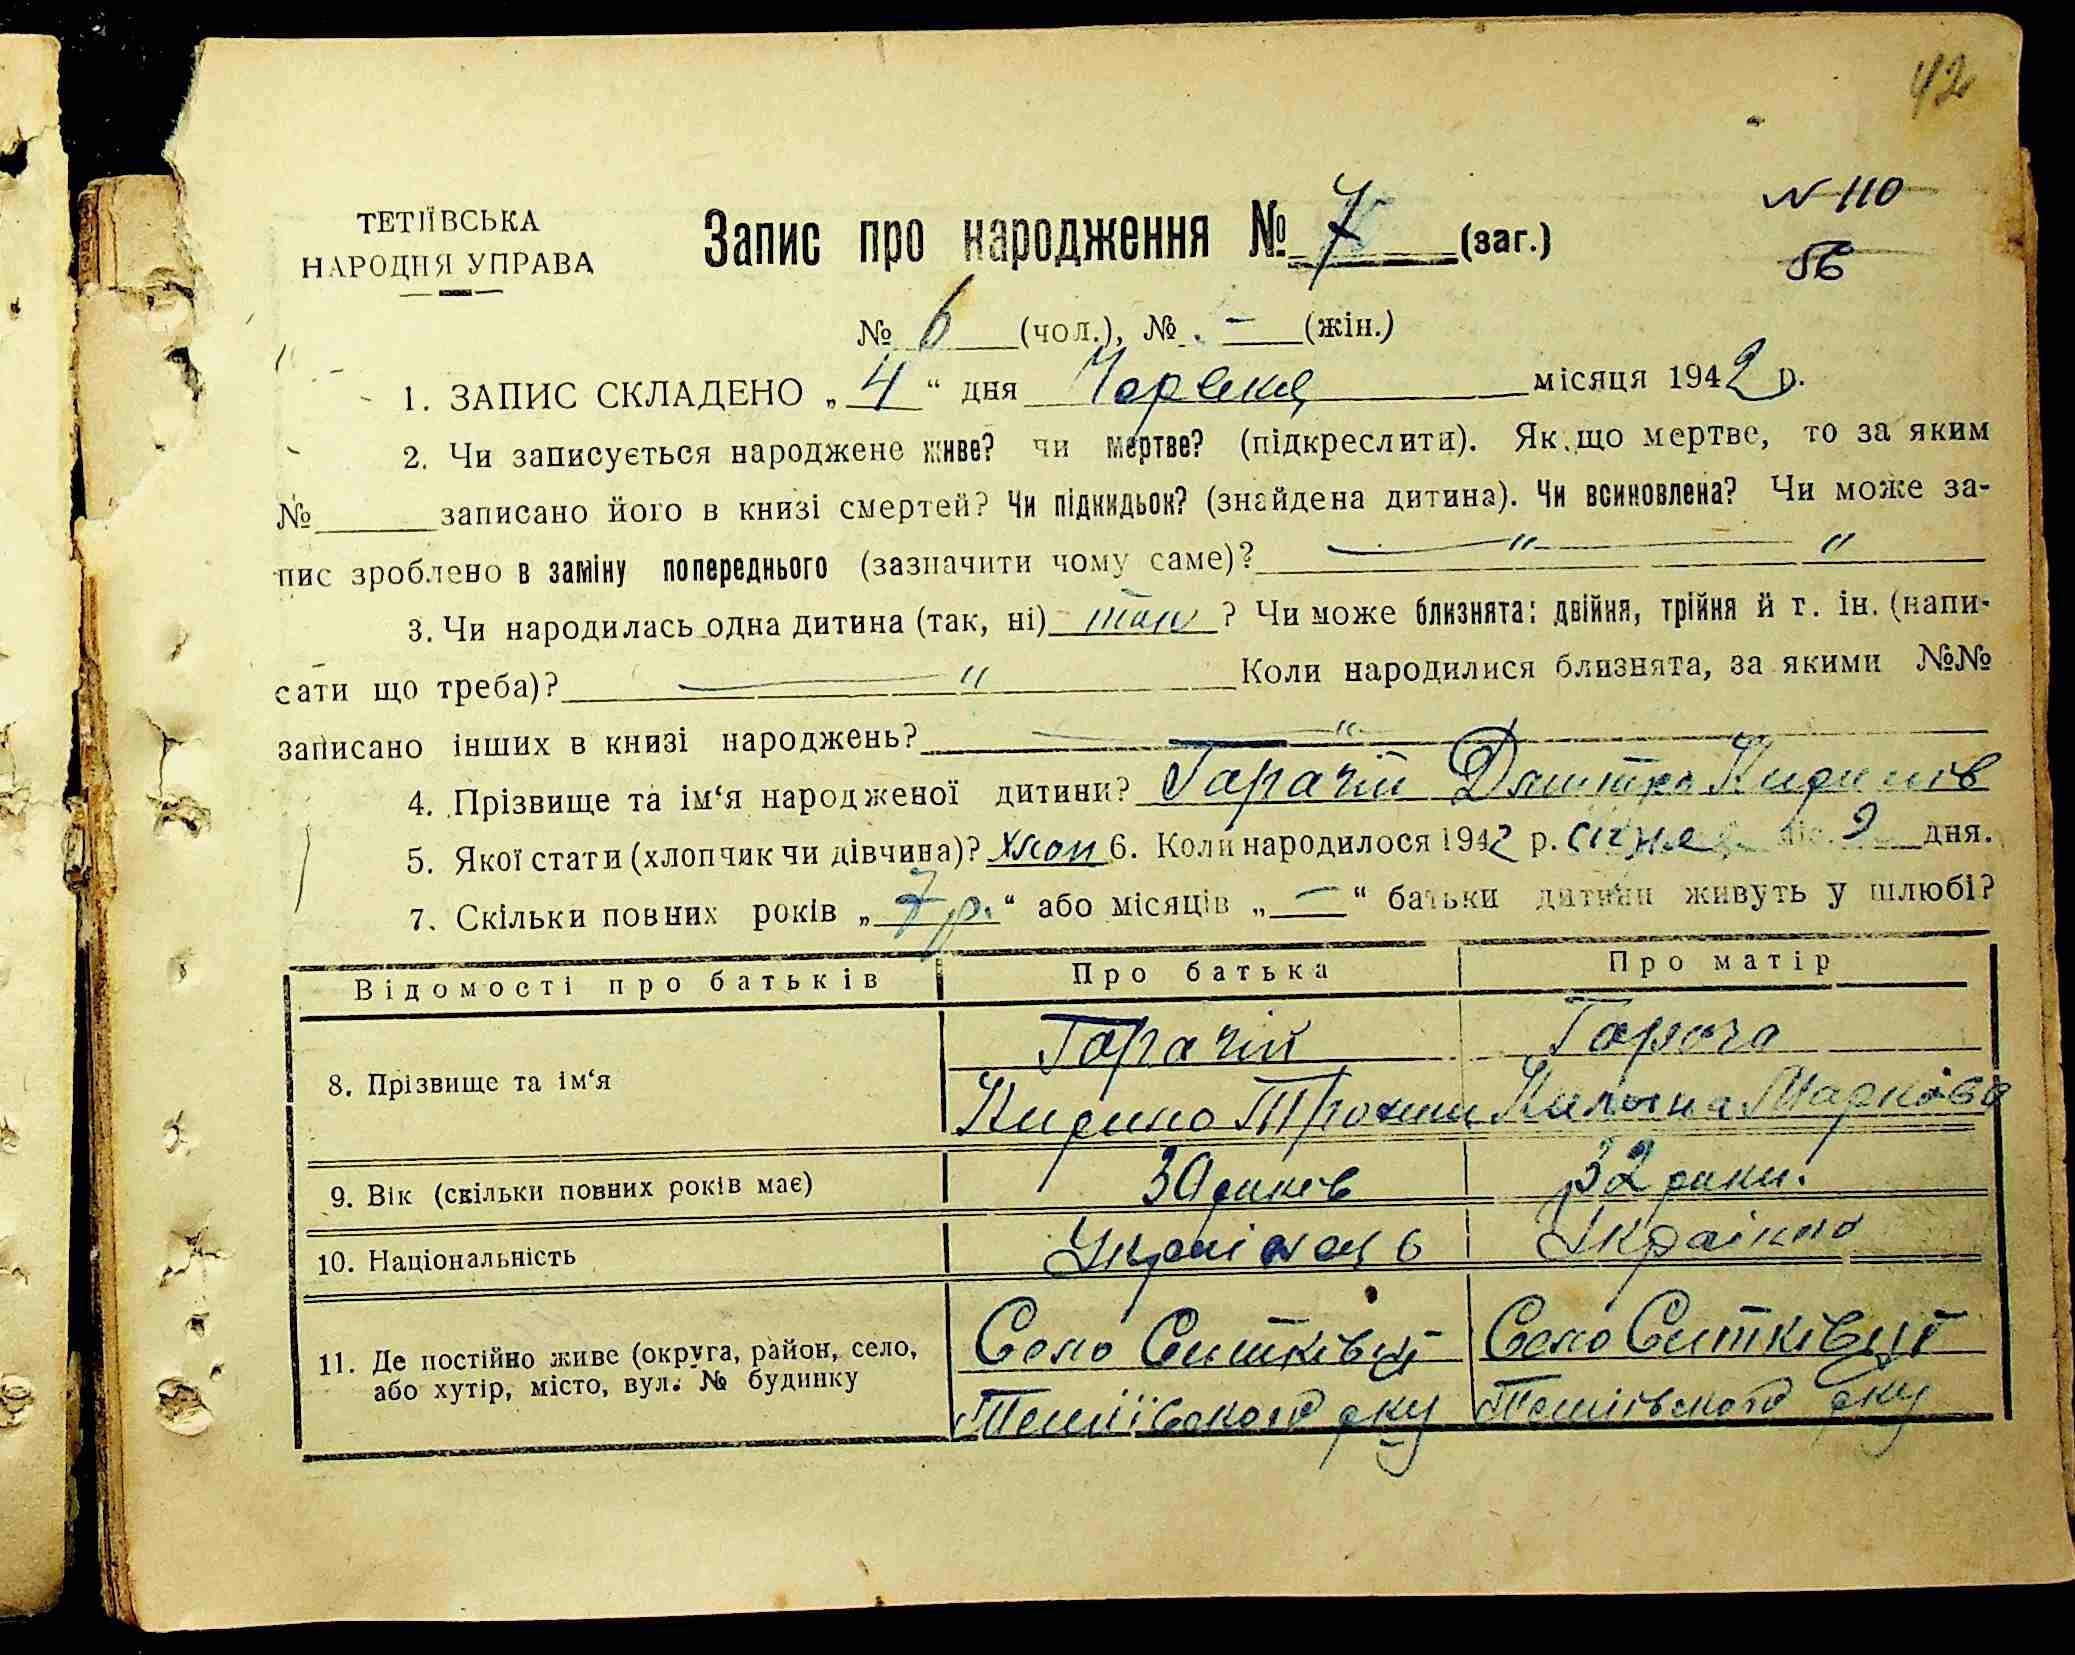 42
ТЕТІЇВСЬКА
НАРОДНЯ УПРАВА
Запис про народження № 7 (заг.)
N 110
56
№ 6 (чол.), № - (жін.)
1. ЗАПИС СКЛАДЕНО „4“ дня Червня місяця 1942 р.
2. Чи записується народжене живе? чи мертве? (підкреслити). Як що мертве, то за яким
№ записано його в книзі смертей? Чи підкидьок? (знайдена дитина). Чи всиновлена? Чи може за-
пис зроблено в заміну попереднього (зазначити чому саме)? — " — "
3. Чи народилась одна дитина (так, ні) так ? Чи може близнята: двійня, трійня й т. ін. (напи-
сати що треба)? — " Коли народилися близнята, за якими №№
записано інших в книзі народжень? — "
4. Прізвище та ім‘я народженої дитини? Гарачій Дмитро
5. Якої стати (хлопчик чи дівчина)? хлоп 6. Коли народилося 1942 р. січня міс. 9 дня.
7. Скільки повних років „7 р.“ або місяців „—“ батьки дитини живуть у шлюбі?
Відомості про батьків Про батька Про матір
8. Прізвище та ім‘я
Гарачій Гарача
Маркова
9. Вік (скільки повних років має) 32 роки.
10. Національність Українець Українка
11. Де постійно живе (округа, район, село,
або хутір, місто, вул. № будинку
Село Ситківці Село Ситківці
Тетіївського р-ку Тетіївського р-ку